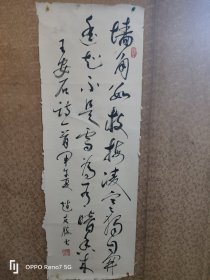 墙角数枝梅凌寒独自开
遥知不是雪为有暗香来
王安石诗一首甲午夏
OPPO Reno7 5G